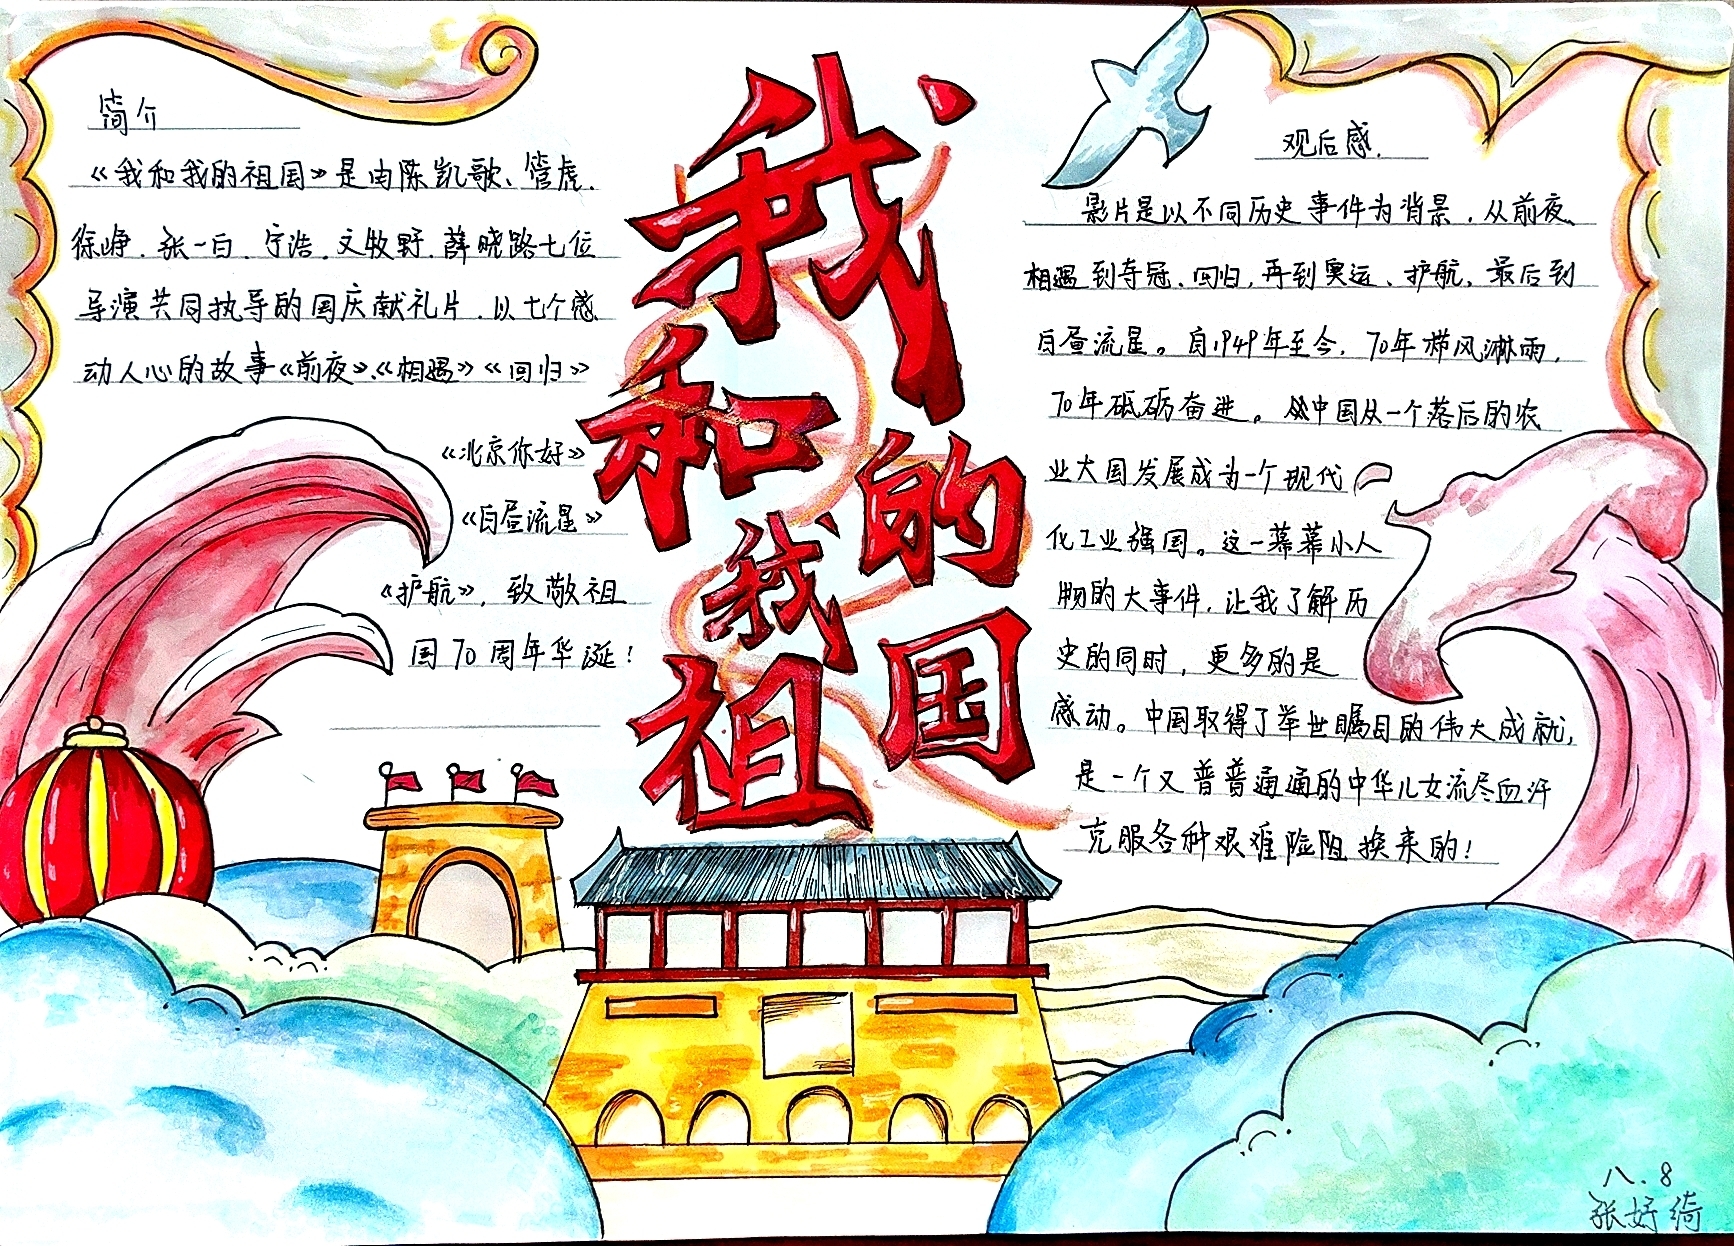 我和我的祖国
简介
《我和我的祖国》是由陈凯歌、管虎、
徐峥、张一白、宁浩、文牧野、薛晓路七位
导演共同执导的国庆献礼片，以七个感
动人心的故事《前夜》、《相遇》《回归》
《北京你好》
《白昼流星》
《护航》，致敬祖
国70周年华诞！
观后感.
影片是以不同历史事件为背景，从前夜、
相遇到夺冠、回归，再到奥运、护航，最后到
白昼流星。自1949年至今，70年栉风淋雨，
70年砥砺奋进。从中国从一个落后的农
业大国发展成为一个现代
化工业强国。这一幕幕小人
物的大事件，让我了解历
史的同时，更多的是
感动。中国取得了举世瞩目的伟大成就，
是一个又普普通通的中华儿女流尽血汗
克服各种艰难险阻换来的！
八.8
张好绮